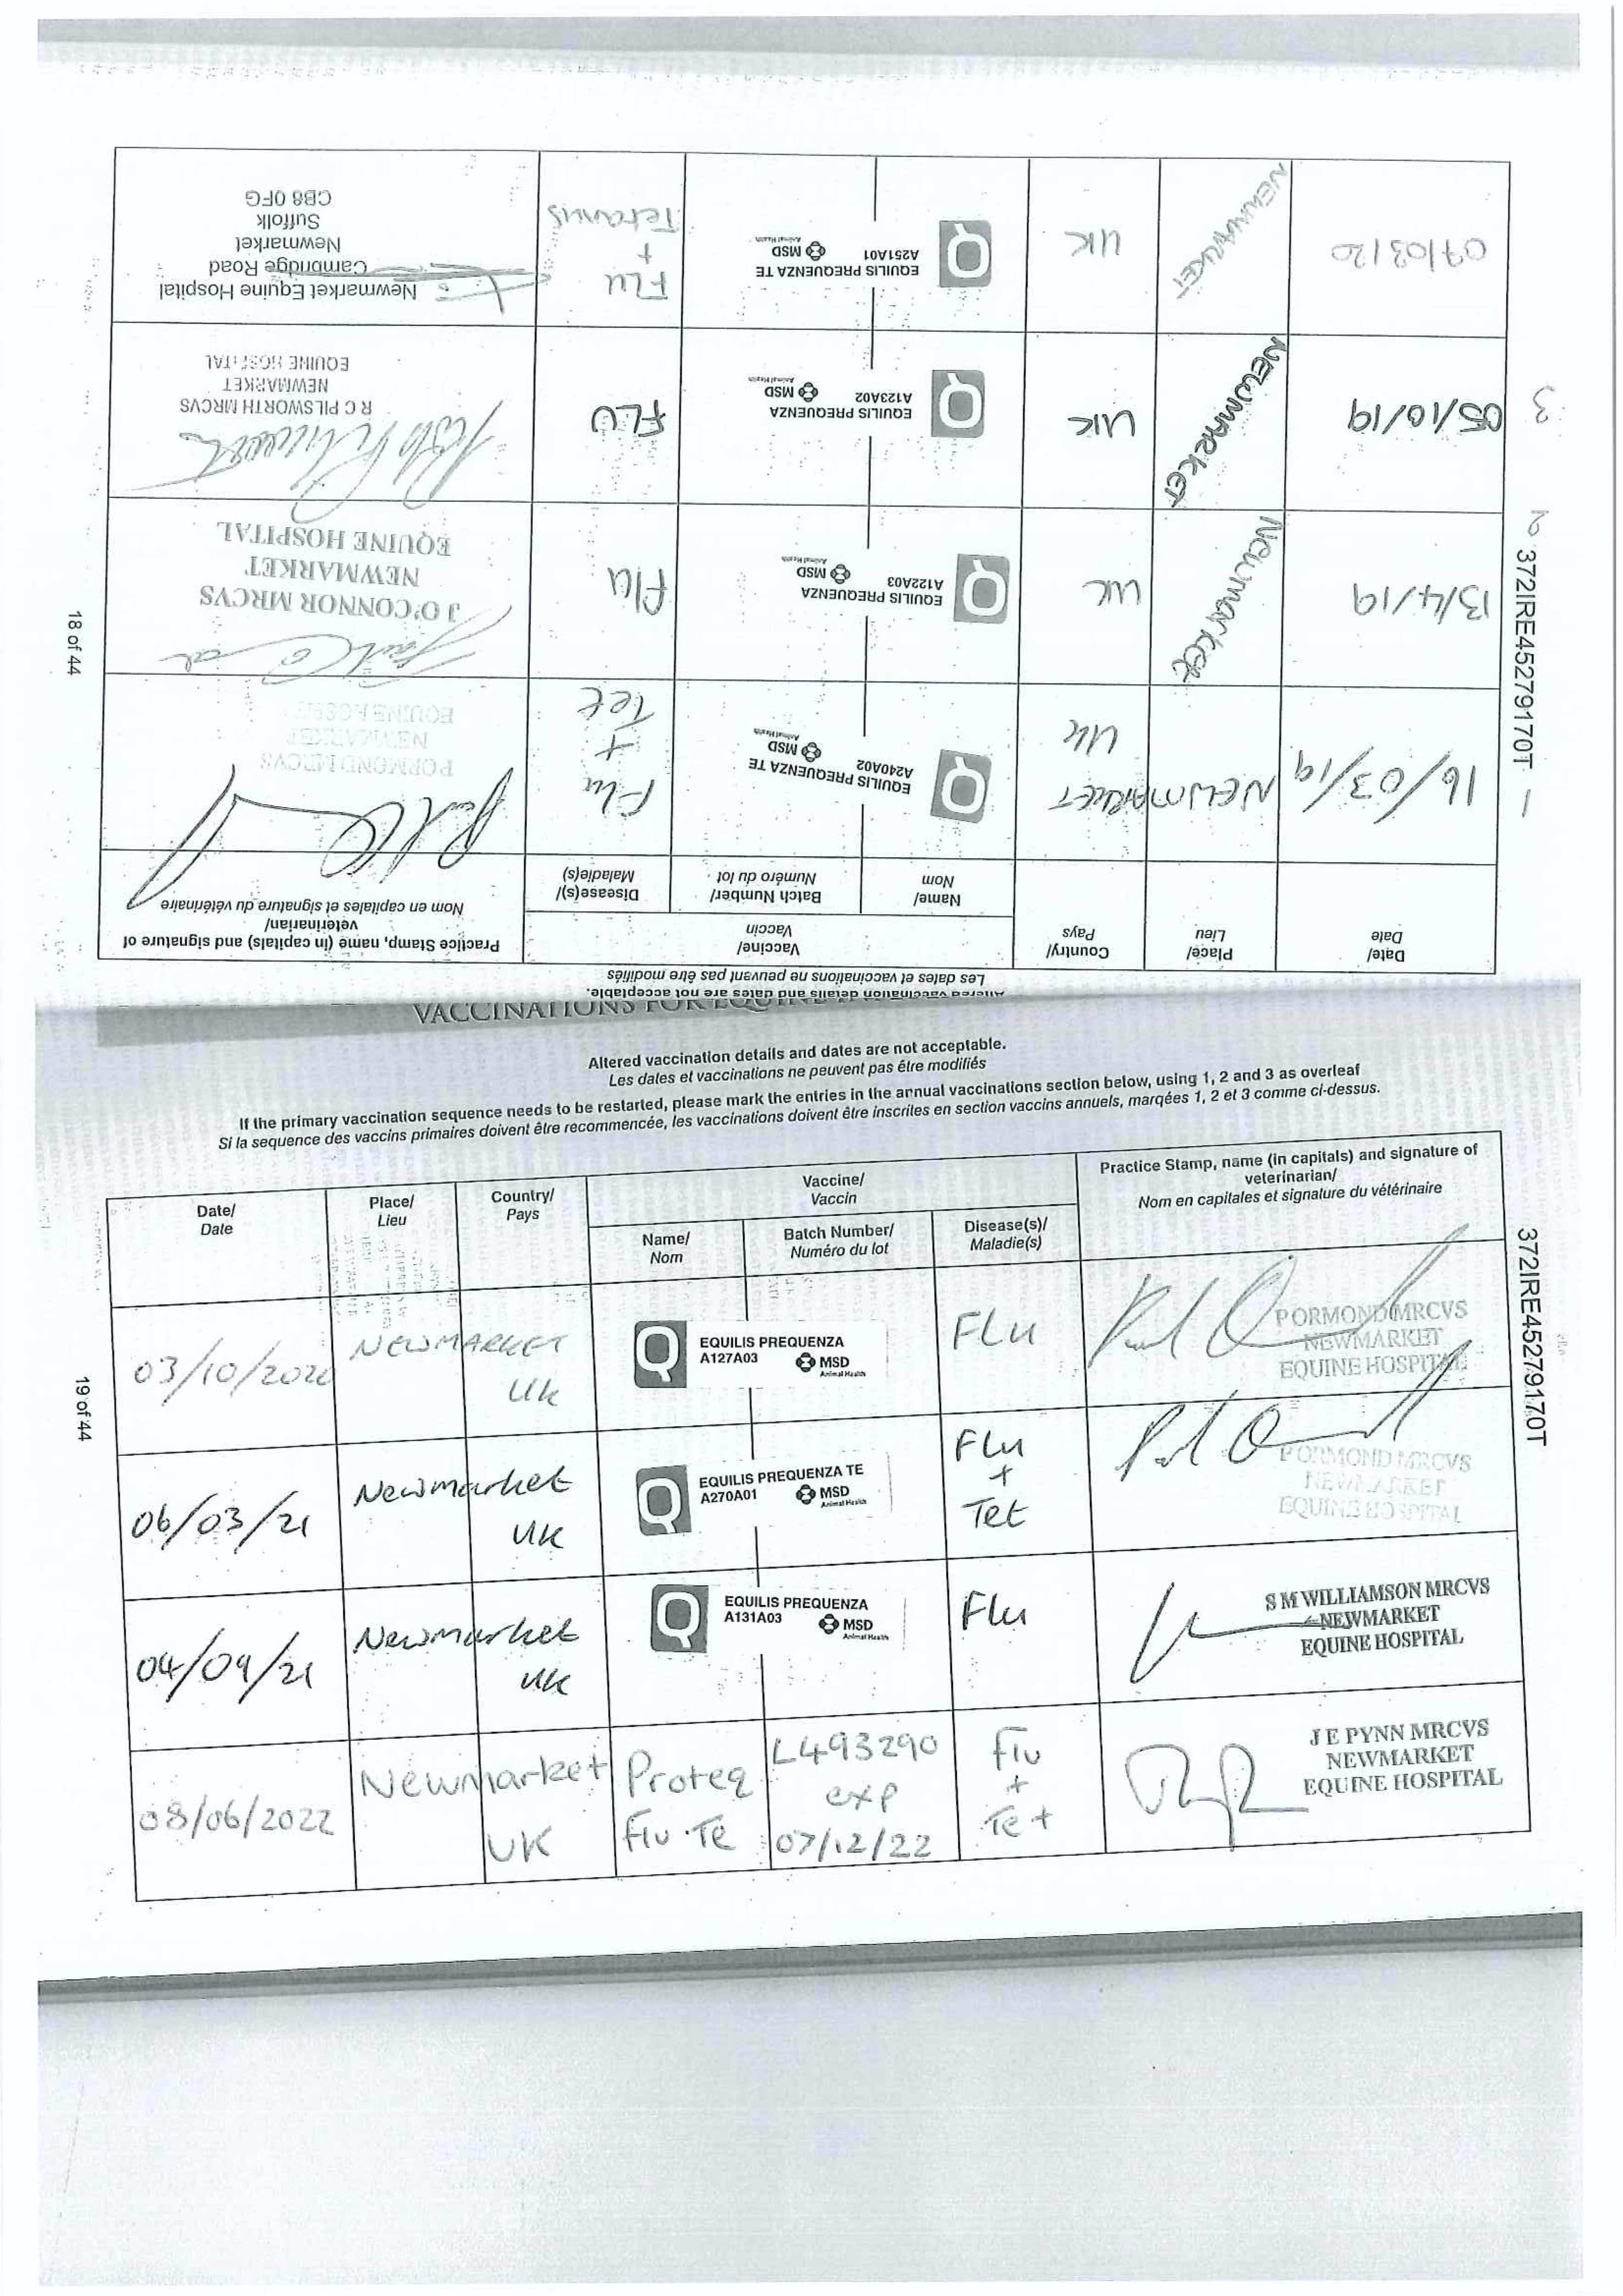 18 of 44
372IRE45279170T
Altered vaccination details and dates are not acceptable.
Les dates et vaccinations ne peuvent pas être modifiés
Date/
Date
Place/
Lieu
Country/
Pays
Vaccine/
Vaccin
Name/
Nom
Batch Number/
Numéro du lot
Disease(s)/
Maladie(s)
Practice Stamp, name (in capitals) and signature of
veterinarian/
Nom en capitales et signature du vétérinaire
1
16/03/19
NEWMARKET
UK
EQUILIS PREQUENZA TE
A240A02
MSD
Animal Health
Flu
+
Tet
PORMOND MRCVS
NEWMARKET
EQUINE HOSPITAL
2
13/4/19
Newmarket
UK
EQUILIS PREQUENZA
A122A03
MSD
Animal Health
Flu
J O'CONNOR MRCVS
NEWMARKET
EQUINE HOSPITAL
3
05/10/19
NEWMARKET
UK
EQUILIS PREQUENZA
A123A02
MSD
Animal Health
FLU
R C PILSWORTH MRCVS
NEWMARKET
EQUINE HOSPITAL
07/03/20
NEWMARKET
UK
EQUILIS PREQUENZA TE
A251A01
MSD
Animal Health
FLU
+
Tetanus
Newmarket Equine Hospital
Cambridge Road
Newmarket
Suffolk
CB8 0FG
VACCINATIONS FOR
Altered vaccination details and dates are not acceptable.
Les dates et vaccinations ne peuvent pas être modifiés
If the primary vaccination sequence needs to be restarted, please mark the entries in the annual vaccinations section below, using 1, 2 and 3 as overleaf
Si la sequence des vaccins primaires doivent être recommencée, les vaccinations doivent être inscrites en section vaccins annuels, marqées 1, 2 et 3 comme ci-dessus.
Date/
Date
Place/
Lieu
Country/
Pays
Vaccine/
Vaccin
Name/
Nom
Batch Number/
Numéro du lot
Disease(s)/
Maladie(s)
Practice Stamp, name (in capitals) and signature of
veterinarian/
Nom en capitales et signature du vétérinaire
03/10/2020
NEWMARKET
UK
EQUILIS PREQUENZA
A127A03
MSD
Animal Health
FLU
PORMOND MRCVS
NEWMARKET
EQUINE HOSPITAL
06/03/21
Newmarket
UK
EQUILIS PREQUENZA TE
A270A01
MSD
Animal Health
Flu
+
Tet
PORMOND MRCVS
NEWMARKET
EQUINE HOSPITAL
04/09/21
Newmarket
UK
EQUILIS PREQUENZA
A131A03
MSD
Animal Health
Flu
S M WILLIAMSON MRCVS
NEWMARKET
EQUINE HOSPITAL
08/06/2022
Newmarket
UK
Proteq
Flu-Te
L493290
exp
07/12/22
Flu
+
Tet
J E PYNN MRCVS
NEWMARKET
EQUINE HOSPITAL
372IRE45279170T
19 of 44